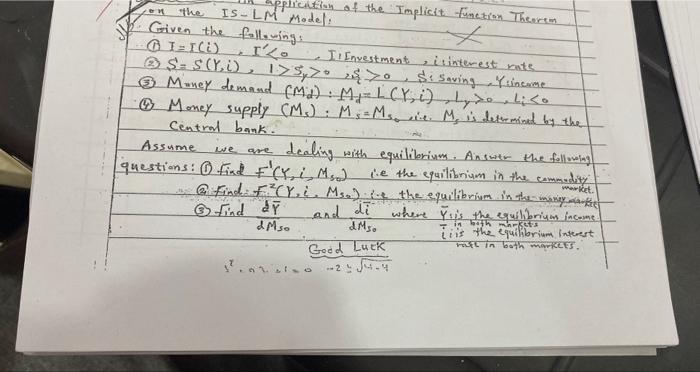 an application of the Implicit function Theorem
on the IS-LM Model:
Given the following:
① I=I(i) , I'<0 , I: Investment , i: interest rate
② S= S(Y,i) , 1>Sy>0 , Si>0 , S: Saving , Y: income
③ Money demand (Md) : Md=L(Y,i) , Ly>0 , Li<0
④ Money supply (Ms) : Ms=Mso i.e. Ms is determined by the
Central bank.
Assume we are dealing with equilibrium. Answer the following
questions: ① find F¹(Y, i, Mso) i.e the equilibrium in the commodity
market.
② Find: F²(Y, i, Mso) i.e the equilibrium in the money market
③ find dȲ/dMso and dī/dMso where Ȳ: is the equilibrium income
in both markets
ī: is the equilibrium interest
rate in both markets.
Good Luck